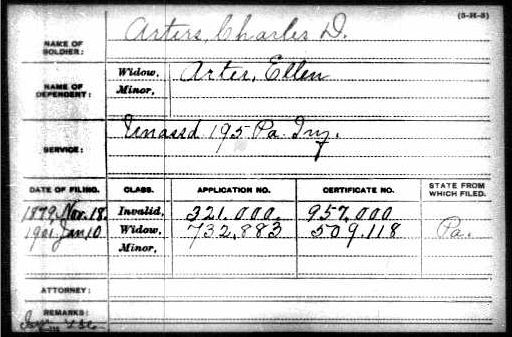 (3-H-3)
NAME OF SOLDIER: Arters, Charles D.
NAME OF DEPENDENT: Widow, Arter, Ellen
Minor,
SERVICE: Unassd 195 Pa. Inf.
DATE OF FILING. CLASS. APPLICATION NO. CERTIFICATE NO. STATE FROM WHICH FILED.
1879, Nov. 18. Invalid, 321,000. 957,000
1901 Jan 10 Widow, 732,883 509,118 Pa.
Minor,
ATTORNEY:
REMARKS: